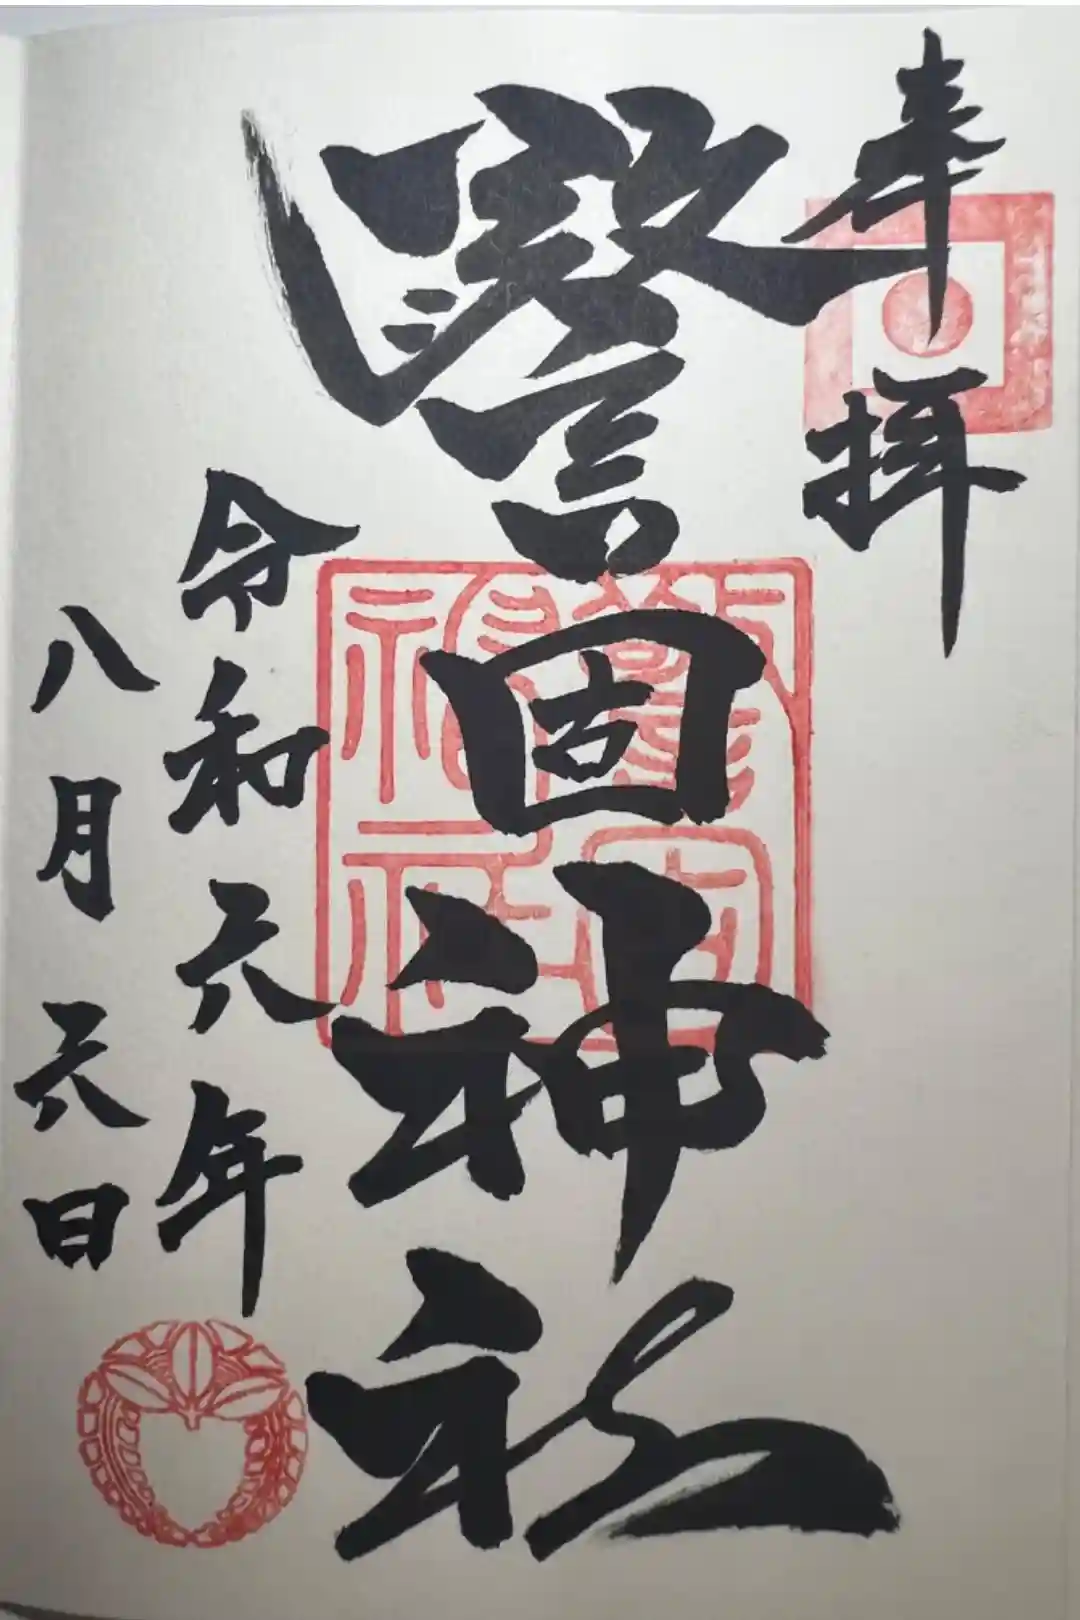 奉拝
警固神社
令和六年
八月六日
警固神社